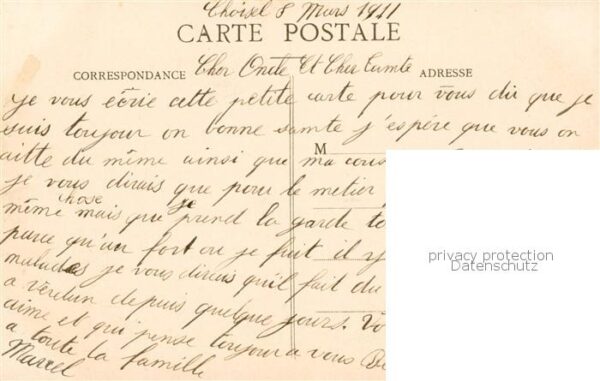 Choisel 8 Mars 1911
CARTE POSTALE
CORRESPONDANCE
ADRESSE
Cher Oncle Et Cher Tamte
Je vous écrie cette petite carte pour vous dir que je
suis toujour on bonne samte j'espére que vous on
aitte du même ainsi que ma cous
M
je vous dirais que pour le metier
même chose mais que je prend la garde to
parce qu'un fort ou je fuit il y
malades je vous dirais qu'il fait du
a verdun depuis quelque jours. Vo
aime et qui pense toujour a vous
a toute la famille
Marcel
privacy protection
Datenschutz